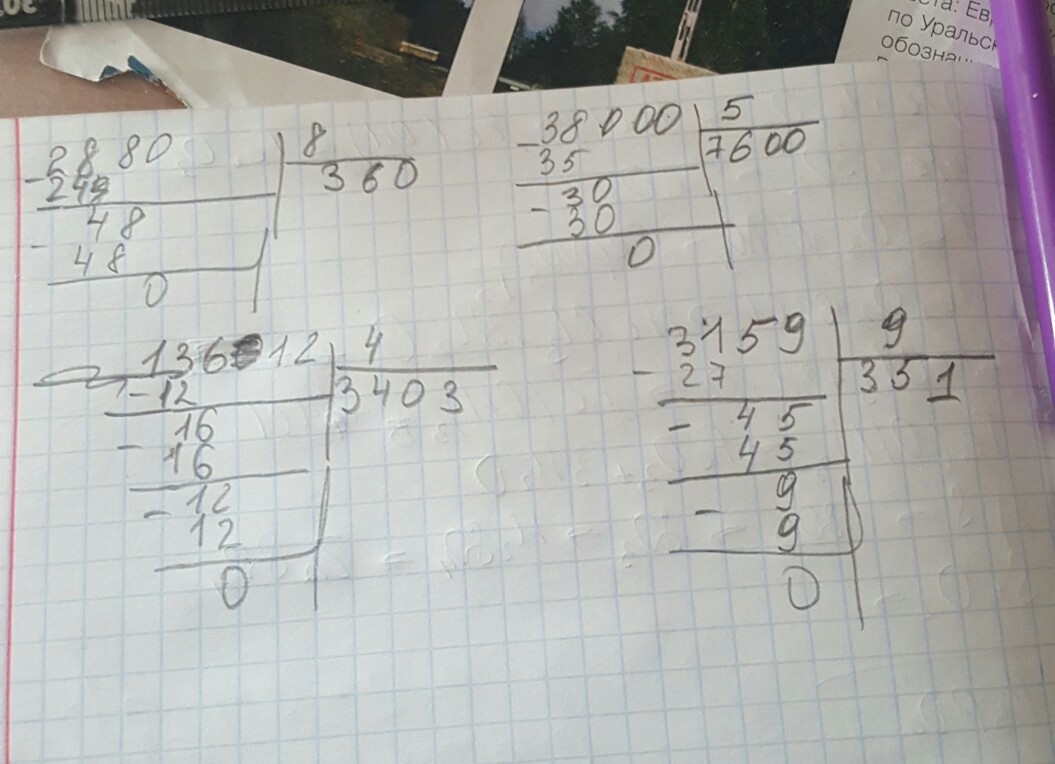 ста: Ев
по Уральск
обознач
- 2880 | 8
24 | 360
- 48
48
0
- 38000 | 5
35 | 7600
- 30
30
0
13612 | 4
- 12 | 3403
- 16
16
- 12
12
0
3159 | 9
- 27 | 351
- 45
45
- 9
9
0